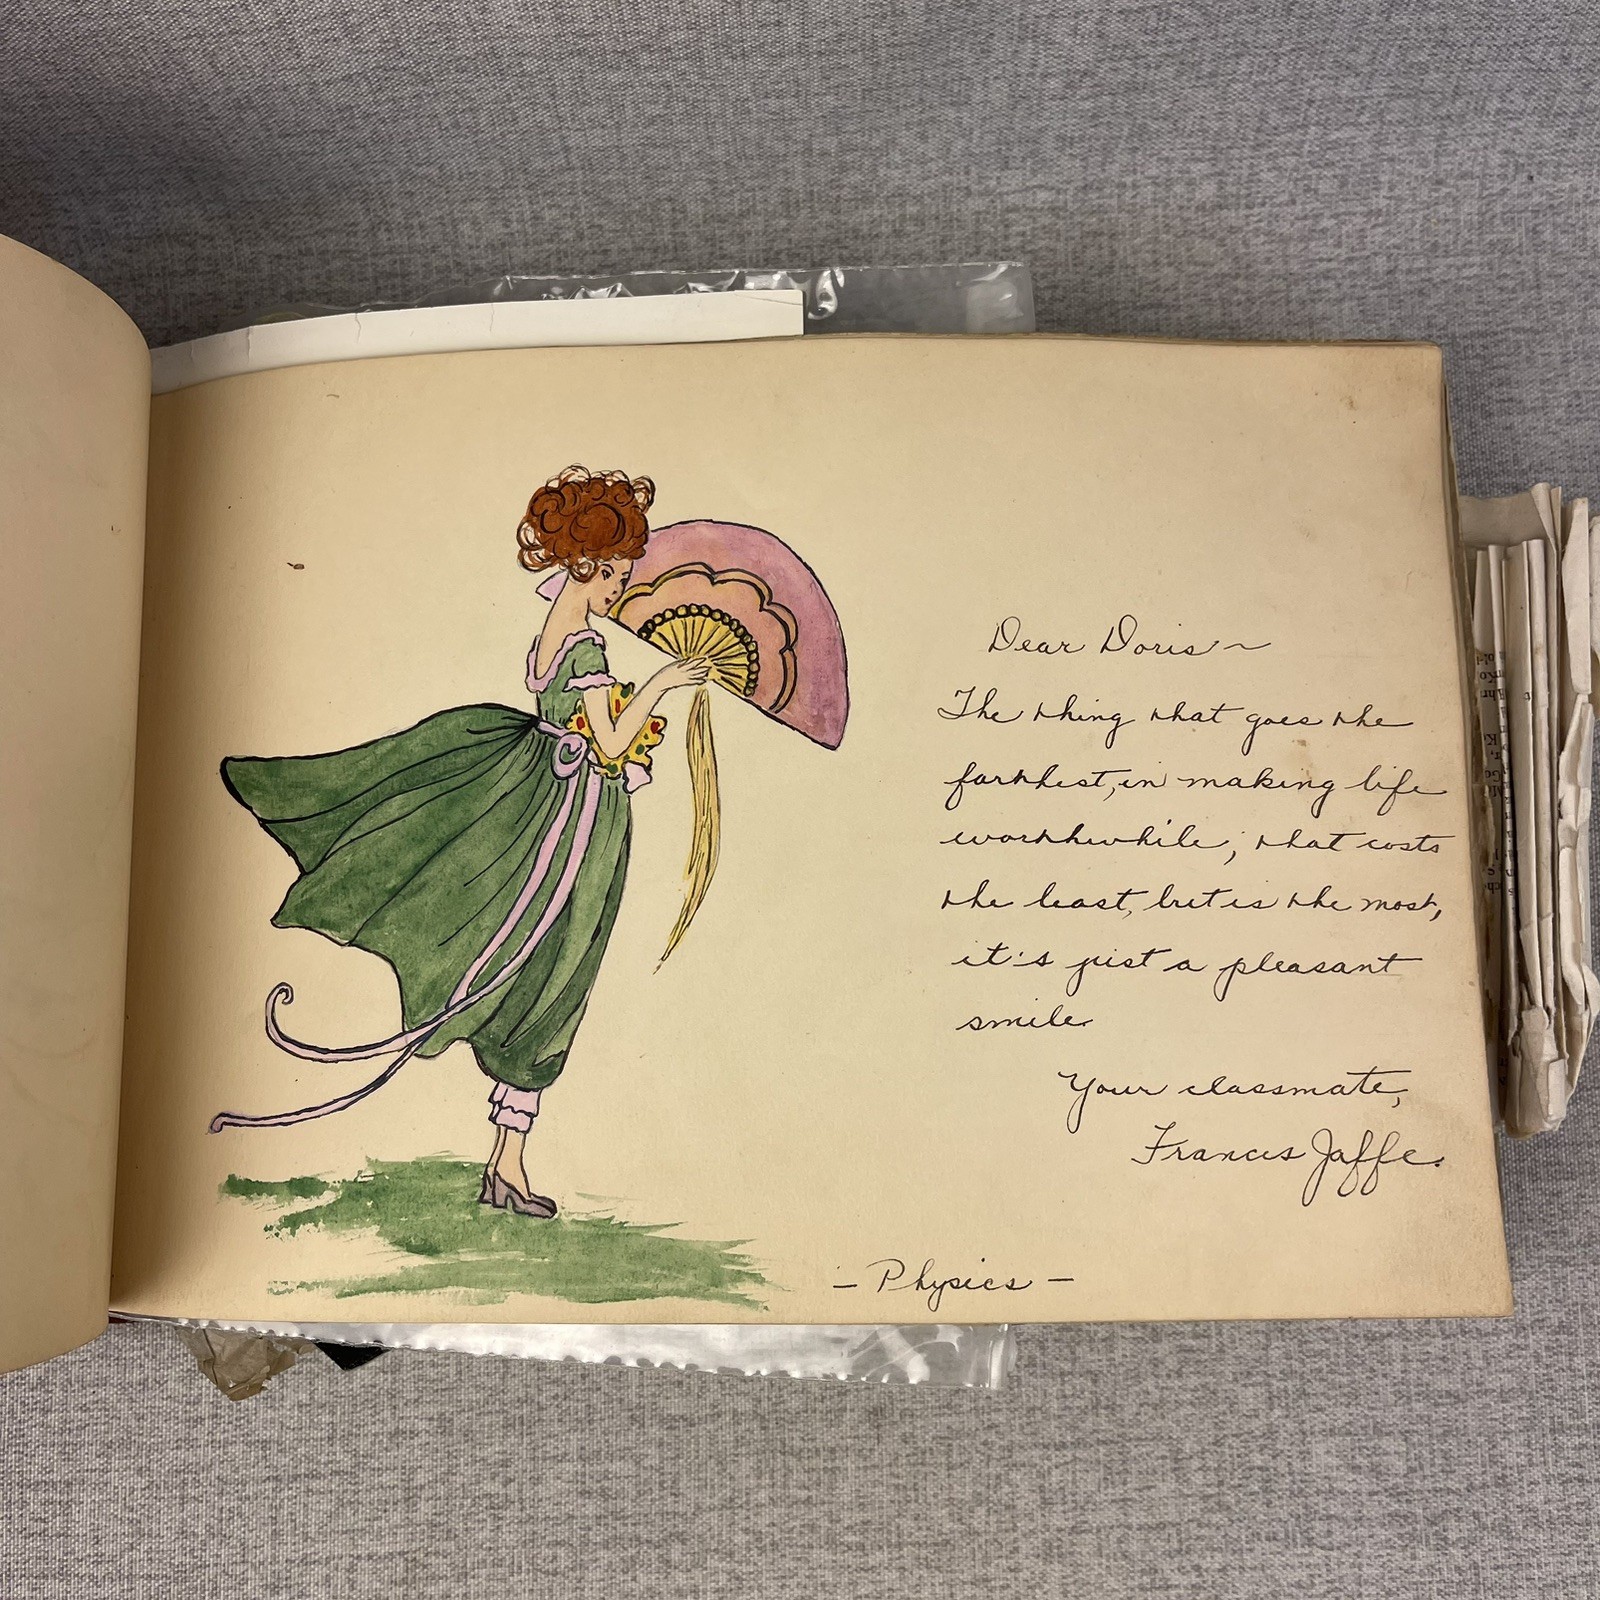 Dear Doris ~
The thing that goes the
farthest, in making life
worthwhile; that costs
the least, but is the most,
it's just a pleasant
smile.
Your classmate,
Francis Jaffe.
- Physics -